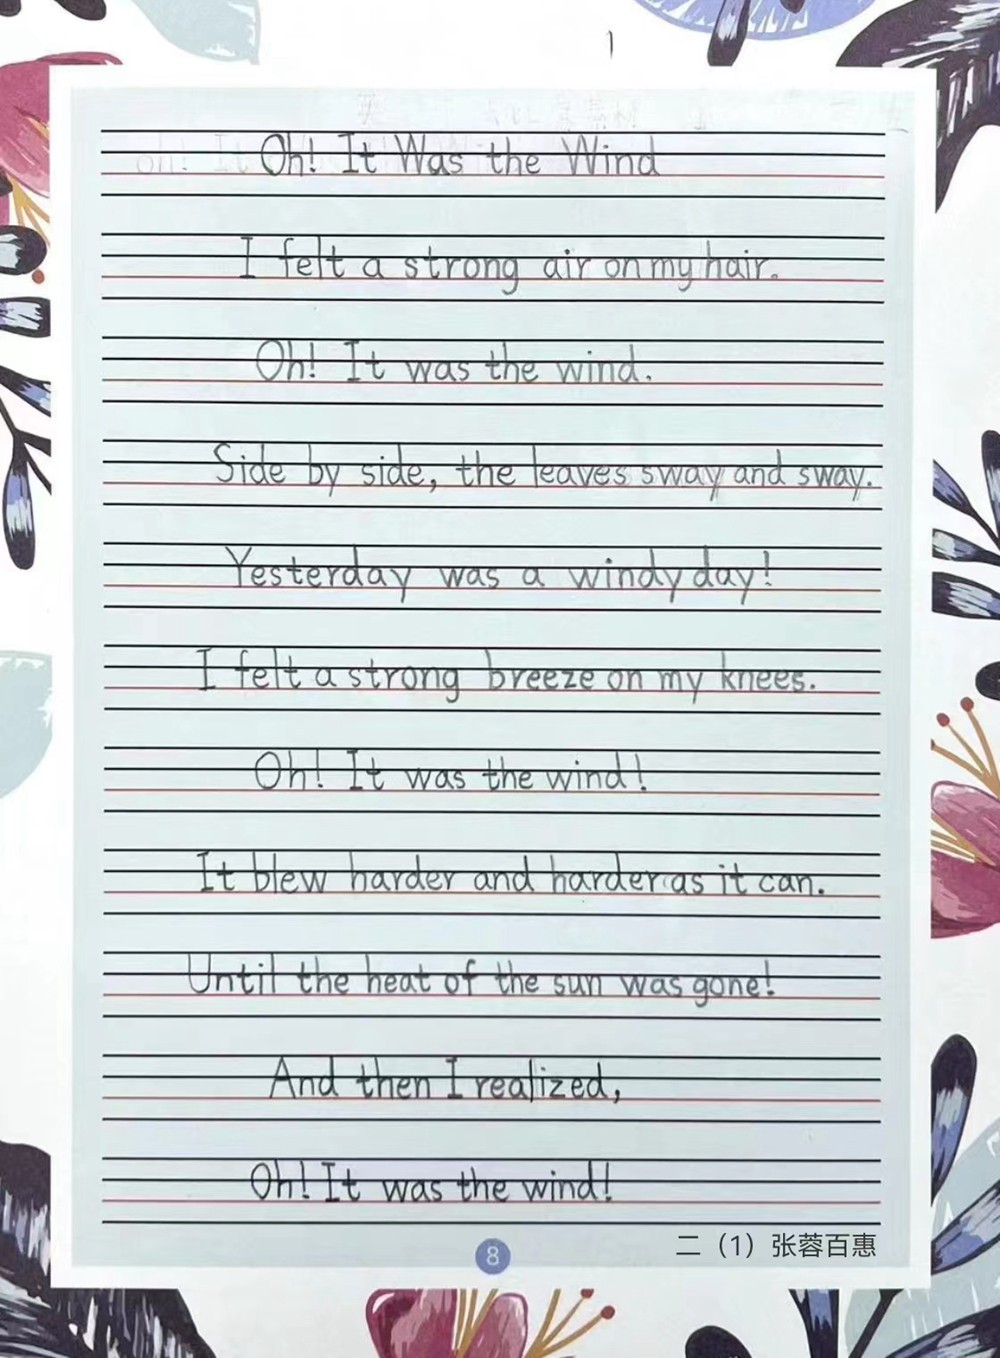 Oh! It Was the Wind
I felt a strong air on my hair.
Oh! It was the wind.
Side by side, the leaves sway and sway.
Yesterday was a windy day!
I felt a strong breeze on my knees.
Oh! It was the wind!
It blew harder and harder as it can.
Until the heat of the sun was gone!
And then I realized,
Oh! It was the wind!
8
二（1）张蓉百惠